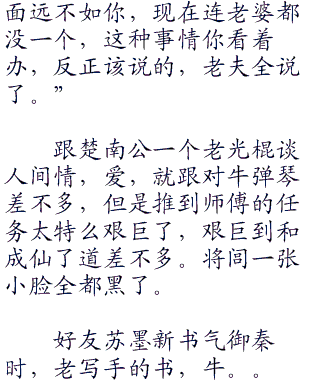 面远不如你，现在连老婆都
没一个，这种事情你看着
办，反正该说的，老夫全说
了。”
跟楚南公一个老光棍谈
人间情，爱，就跟对牛弹琴
差不多，但是推到师傅的任
务太特么艰巨了，艰巨到和
成仙了道差不多。将闾一张
小脸全都黑了。
好友苏墨新书气御秦
时，老写手的书，牛。。